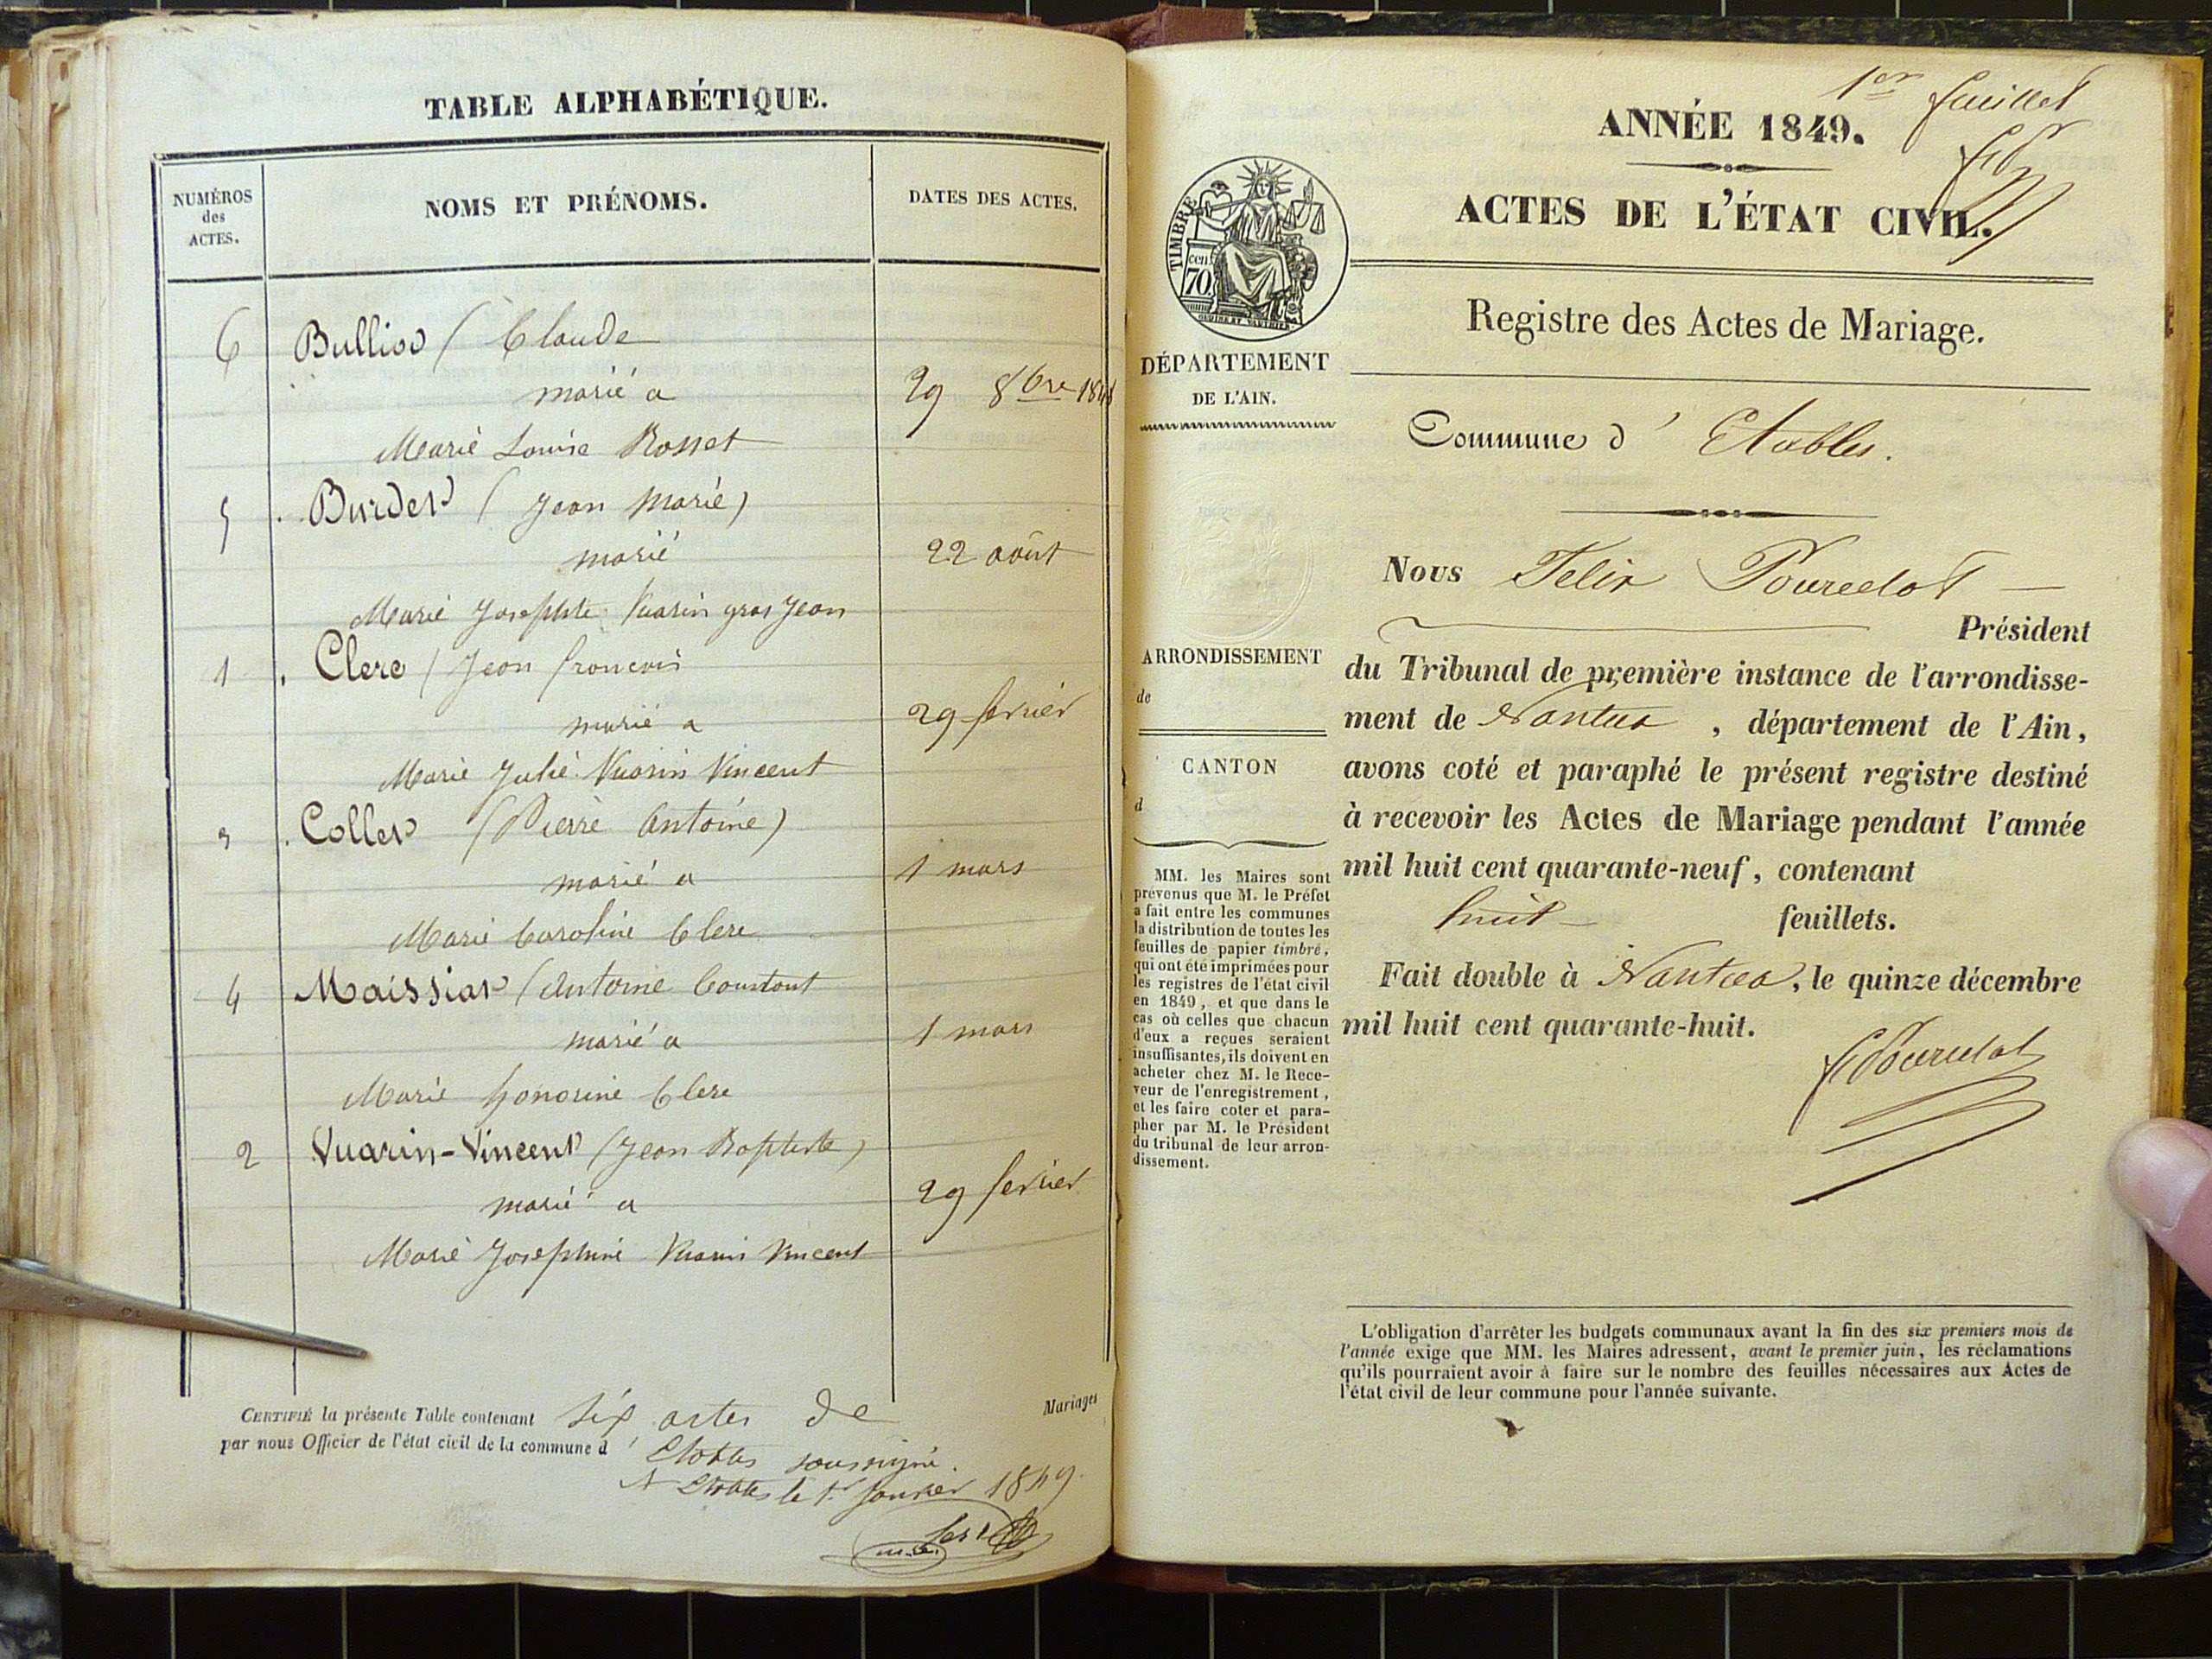 TABLE ALPHABÉTIQUE.
NUMÉROS
des
ACTES.
NOMS ET PRÉNOMS.
DATES DES ACTES.
6 Bulliod ( Claude
marié a
29 8bre 1848
Marie Louise Rosset
5 Burdet ( Jean Marie )
marié
22 août
Marie Josephte Vuarin gros Jean
1 Clerc ( Jean francois
marié a
29 fevrier
Marie Julie Vuarin Vincent
3 Collet ( Pierre Antoine )
marié a
1 mars
Marie Caroline Clerc
4 Maissiat ( Antoine Constant
marié a
1 mars
Marie honorine Clerc
2 Vuarin-Vincent ( Jean Baptiste )
marié a
29 fevrier
Marie Josephine Vuarin Vincent
CERTIFIÉ la présente Table contenant six actes de Mariages
par nous Officier de l'état civil de la commune d' Etables soussigné.
A Etables le 1er Janvier 1849.
1er feuillet
ANNÉE 1849.
ACTES DE L'ÉTAT CIVIL.
TIMBRE
70 cen.
Registre des Actes de Mariage.
DÉPARTEMENT
DE L'AIN.
Commune d' Etables.
ARRONDISSEMENT
de
CANTON
d
MM. les Maires sont
prévenus que M. le Préfet
a fait entre les communes
la distribution de toutes les
feuilles de papier timbré,
qui ont été imprimées pour
les registres de l'état civil
en 1849, et que dans le
cas où celles que chacun
d'eux a reçues seraient
insuffisantes, ils doivent en
acheter chez M. le Rece-
veur de l'enregistrement,
et les faire coter et para-
pher par M. le Président
du tribunal de leur arron-
dissement.
Nous Felix Pourcelot
Président
du Tribunal de première instance de l'arrondisse-
ment de Nantua, département de l'Ain,
avons coté et paraphé le présent registre destiné
à recevoir les Actes de Mariage pendant l'année
mil huit cent quarante-neuf, contenant
huit feuillets.
Fait double à Nantua, le quinze décembre
mil huit cent quarante-huit.
F Pourcelot
L'obligation d'arrêter les budgets communaux avant la fin des six premiers mois de
l'année exige que MM. les Maires adressent, avant le premier juin, les réclamations
qu'ils pourraient avoir à faire sur le nombre des feuilles nécessaires aux Actes de
l'état civil de leur commune pour l'année suivante.